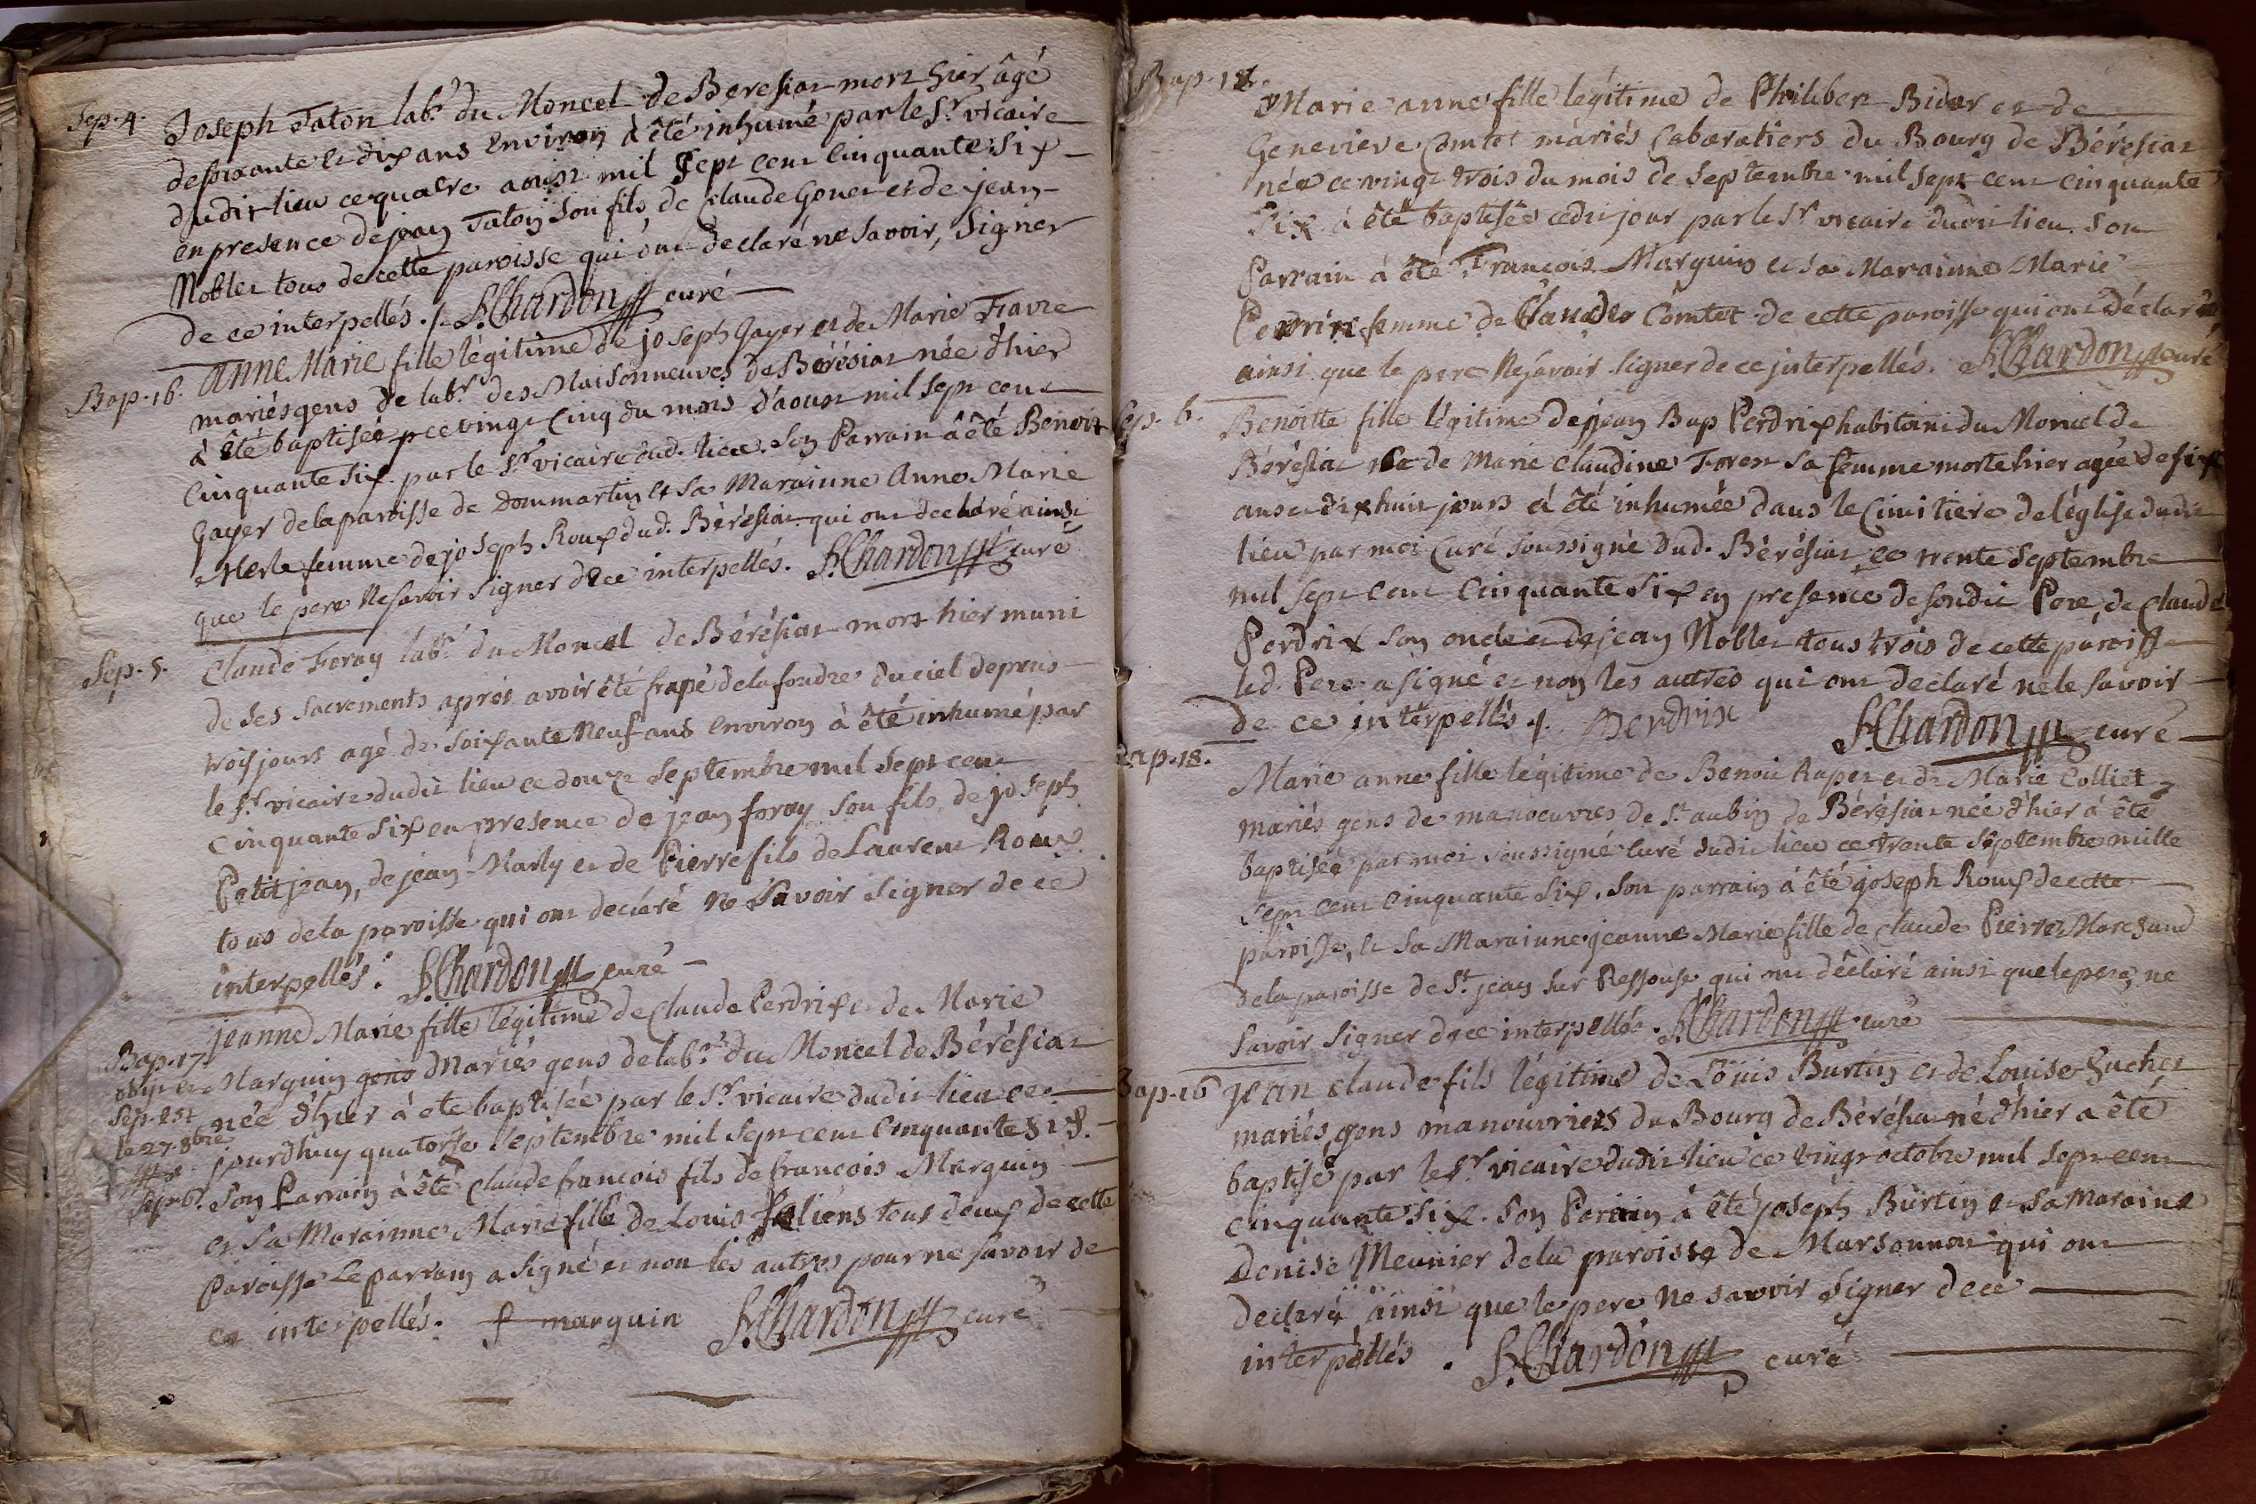 Sep. 4. Joseph Taton lab.r du Moncel de Beresiat mort hier âgé
de soixante et dix ans environ à êté inhumé par le Sr. vicaire
dudit lieu ce quatre aoust mil Sept cent Cinquante Six
en presence de jean Taton son fils, de Claude Gonet et de jean
Noblet tous de cette paroisse qui ont declaré ne Savoir, Signer
de ce interpellés ./. Chardon curé
Bap. 16. Anne Marie fille légitime de joseph Gayer et de Marie Favre
mariés gens de lab.r des Maisonneuves de Bérésiat née d'hier
à êté baptisée ce vingt Cinq du mois d'aoust mil Sept cent
Cinquante Six par le Sr. vicaire dud. lieu. Son Parrain à êté Benoit
Gayer de la paroisse de Dommartin et Sa Marainne Anne Marie
Merle femme de joseph Roux dud. Bérésiat qui ont declaré ainsi
que le pere Ne Savoir Signer de ce interpellés. Chardon curé
Sep. 5. Claude Foray lab.r du Moncel de Bérésiat mort hier muni
de Ses Sacrements aprés avoir êté frapé de la foudre du ciel depuis
trois jours agé de Soixante Neuf ans environ à êté inhumé par
le Sr. vicaire dudit lieu ce douze Septembre mil Sept cent
Cinquante Six en presence de jean foray Son fils, de joseph
Petitjean, de jean Marly et de Pierre fils de Laurent Roux
tous de la paroisse qui ont declaré Ne Savoir Signer de ce
interpellés. Chardon curé
Bap. 17. jeanne Marie fille légitime de Claude Perdrix et de Marie
obiit et Marguin gens Mariés gens de lab.r du Moncel de Bérésiat
Sep. est née d'hier à ete baptisée par le Sr. vicaire dudit lieu ce
le 27 8bre jourdhuy quatorse Septembre mil Sept cent Cinquante Six.
Sep. 6. Son Parrain à êté Claude francois fils de francois Marguin
et Sa Marainne Marie fille de Louis tous deux de cette
Paroisse Le parrain a Signé et non les autres pour ne Savoir de
ce interpellés. f marguin Chardon curé
Bap. Marie anne fille légitime de Philibert Bidar et de
Genevieve Comtet mariés Cabaratiers du Bourg de Bérésiat
née ce vingt trois du mois de Septembre mil Sept cent Cinquante
Six à êté baptisée cedit jour par le Sr. vicaire dudit lieu. Son
Parrain à êté Francois Marguin et Sa Marainne Marie
Perdrix femme de Claude Comtet de cette paroisse qui ont déclaré
ainsi que le pere Ne Savoir Signer de ce interpellés. Chardon curé
Sep. 6. Benoitte fille légitime de jean Bap Perdrix habitant du Moncel de
Bérésiat et de Marie Claudine Foret Sa femme morte hier agée de Six
ans et dix huit jours à êté inhumée dans le Cimitiere de l'église dudit
lieu par moi Curé Soussigné dud. Bérésiat ce trente Septembre
mil Sept cent Cinquante Six en presence de Sondit Pere, de Claude
Perdrix Son oncle et de jean Noblet tous trois de cette paroisse
led. Pere a Signé et non les autres qui ont declaré ne le Savoir
de ce interpellés ./. Perdrix Chardon curé
Bap. 18. Marie anne fille légitime de Benoit Rapet et de Marie Colliet
mariés gens de manoeuvres de St. aubin de Bérésiat née d'hier à êté
baptisée par moi Soussigné Curé dudit lieu ce trente Septembre mille
Sept cent Cinquante Six. Son parrain à êté joseph Roux de cette
paroisse, et Sa Marainne jeanne Marie fille de Claude Pierre Marchand
de la paroisse de St. jean Sur Ressouse qui ont déclaré ainsi que le pere, ne
Savoir Signer de ce interpellés. Chardon curé
Bap. 16 jean Claude fils légitime de Loüis Burtin et de Louise Suchet
mariés gens manouvriers du Bourg de Bérésiat né d'hier a êté
baptisé par le Sr. vicaire dudit lieu ce vingt octobre mil Sept cent
Cinquante Six. Son Parrain à êté joseph Burtin et Sa Marainne
Denise Meunier de la paroisse de Marsonnar qui ont
declaré ainsi que le pere Ne Savoir Signer de ce
interpellés. Chardon curé